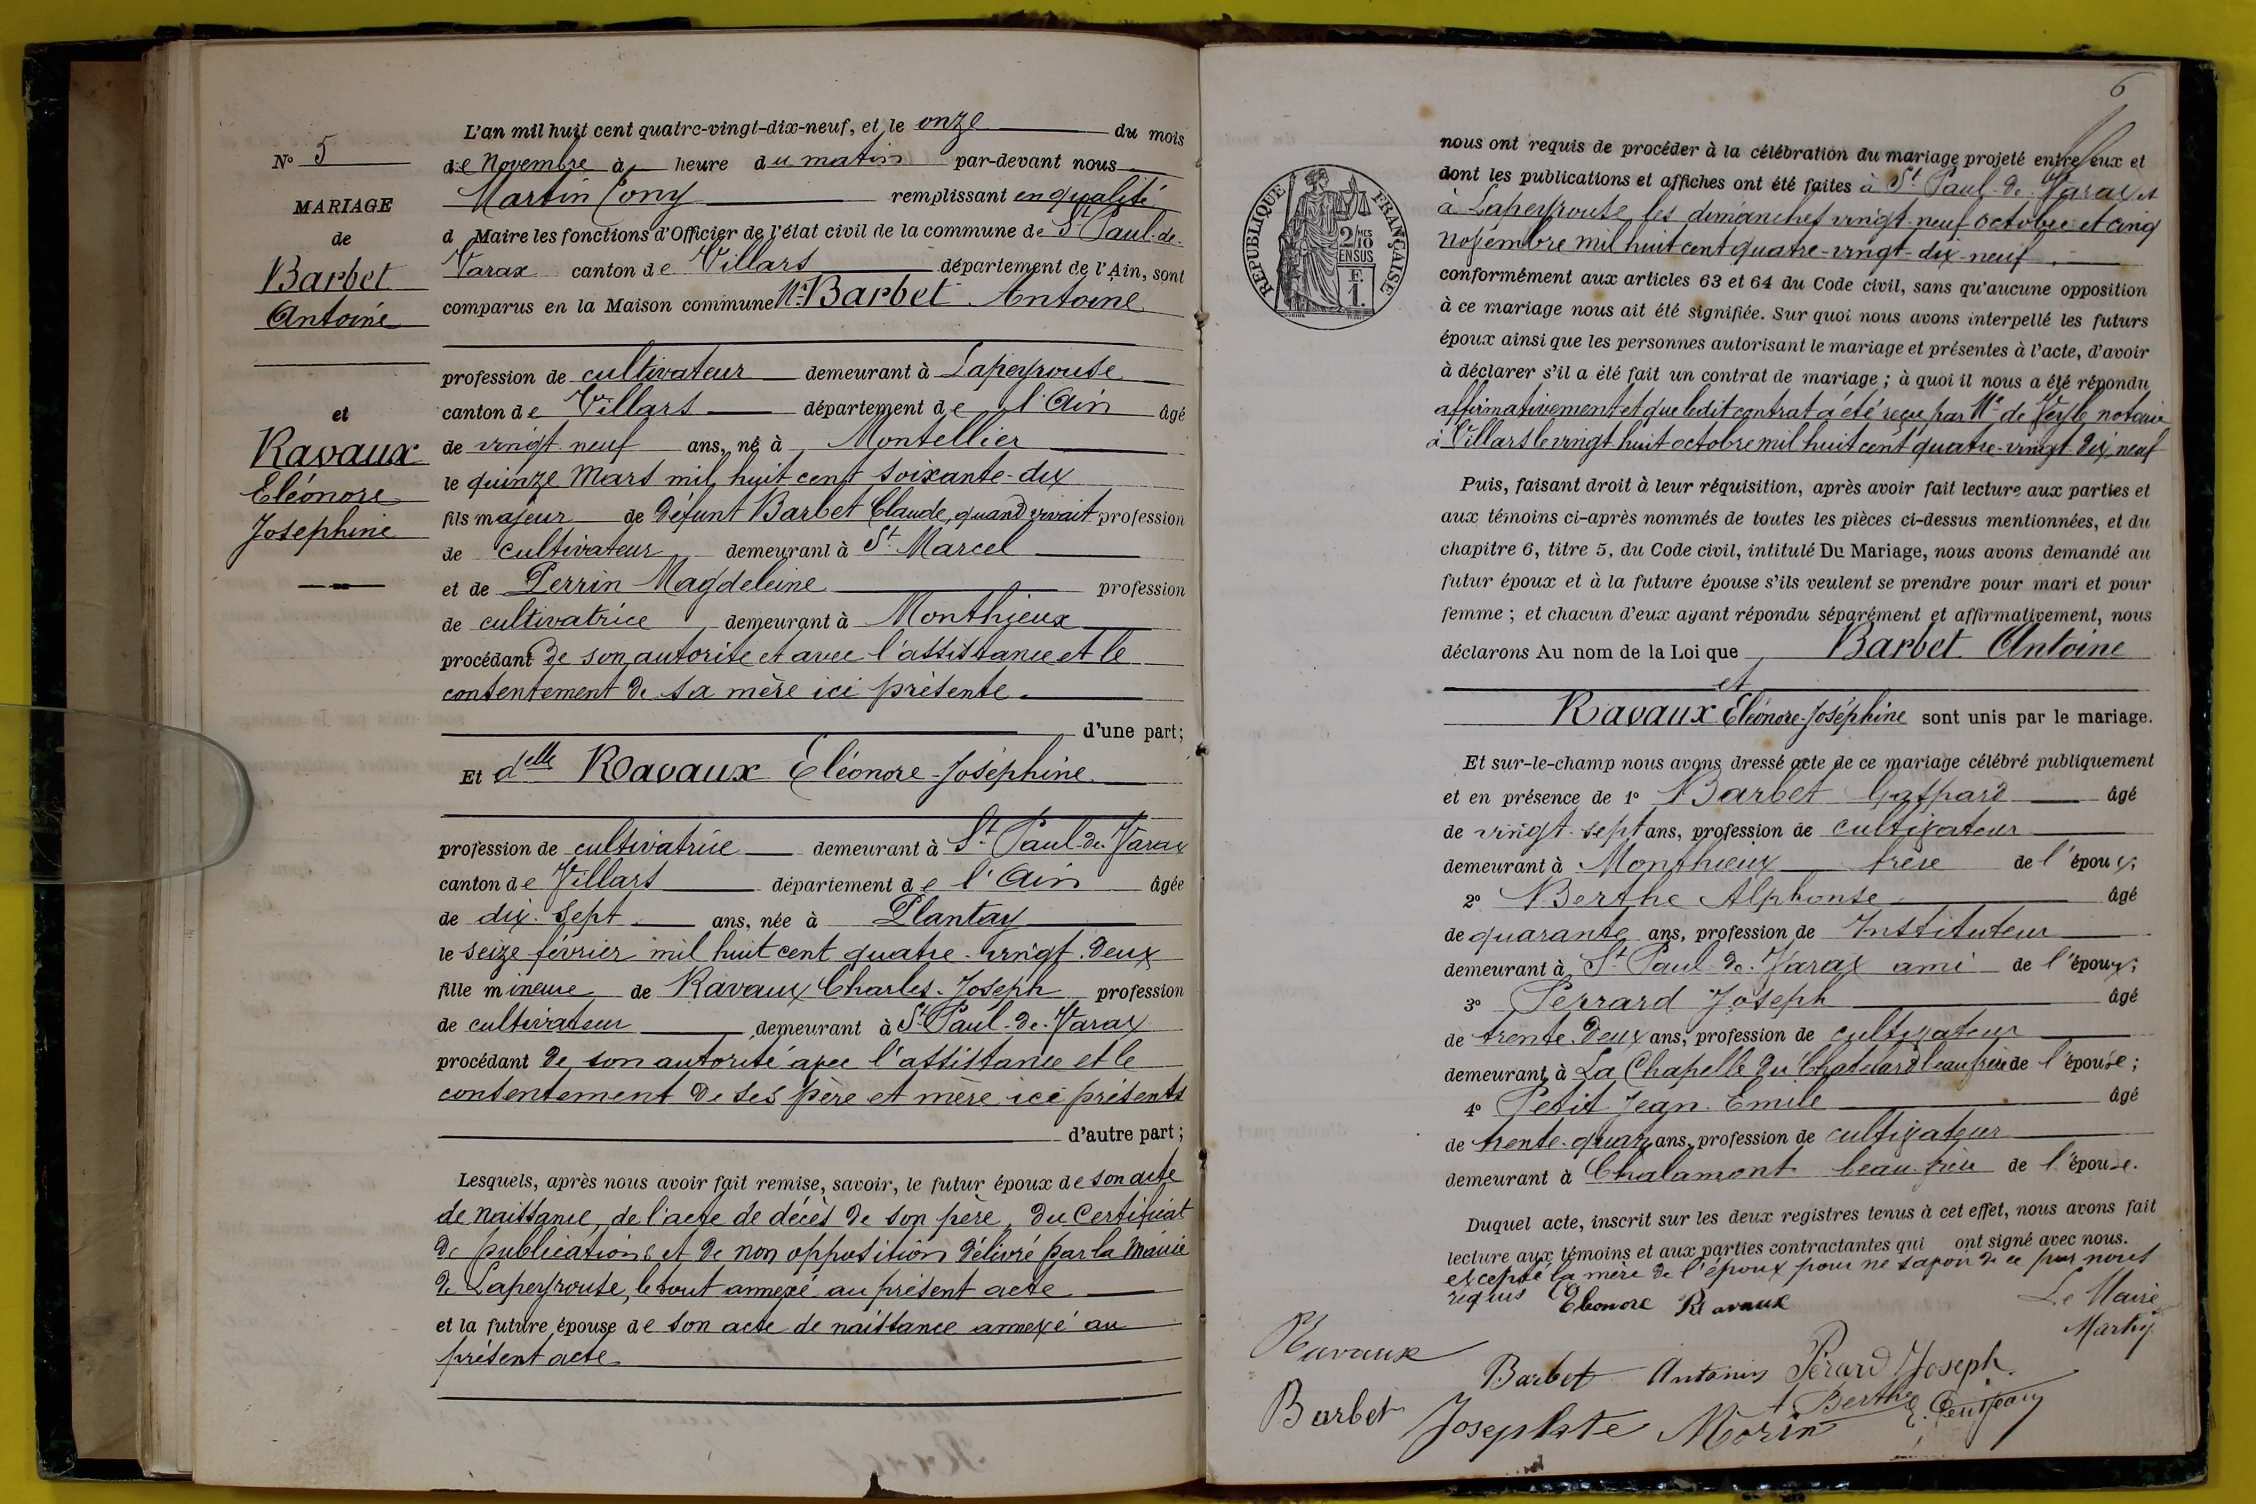 N° 5
MARIAGE
de
Barbet
Antoine
et
Ravaux
Eléonore
Joséphine
L'an mil huit cent quatre-vingt-dix-neuf, et le onze du mois
de Novembre à heure du matin par-devant nous
Martin Cony remplissant en qualité
d Maire les fonctions d'Officier de l'état civil de la commune de St Paul-de-
Varax canton de Villars département de l'Ain, sont
comparus en la Maison commune Mr Barbet Antoine
profession de cultivateur demeurant à Lapeyrouse
canton de Villars département de l'Ain âgé
de vingt neuf ans, né à Montellier
le quinze Mars mil huit cent soixante-dix
fils majeur de défunt Barbet Claude, quand vivait profession
de cultivateur demeurant à St Marcel
et de Perrin Magdeleine profession
de cultivatrice demeurant à Monthieux
procédant de son autorité et avec l'assistance et le
consentement de sa mère ici présente.
d'une part;
Et delle Ravaux Eléonore-Joséphine
profession de cultivatrice demeurant à St Paul-de-Varax
canton de Villars département de l'Ain âgée
de dix-sept ans, née à Plantay
le seize février mil huit cent quatre-vingt-deux
fille mineure de Ravaux Charles-Joseph profession
de cultivateur demeurant à St Paul-de-Varax
procédant de son autorité avec l'assistance et le
consentement de ses père et mère ici présents
d'autre part;
Lesquels, après nous avoir fait remise, savoir, le futur époux de son acte
de naissance, de l'acte de décès de son père, du Certificat
de publications et de non opposition délivré par la Mairie
de Lapeyrouse, le tout annexé au présent acte
et la future épouse de son acte de naissance annexé au
présent acte
6
RÉPUBLIQUE FRANÇAISE
2/10 MES
EN SUS
F.
1.
nous ont requis de procéder à la célébration du mariage projeté entre eux et
dont les publications et affiches ont été faites à St Paul-de-Varax et
à Lapeyrouse les dimanches vingt-neuf octobre et cinq
novembre mil huit cent quatre-vingt-dix-neuf.
conformément aux articles 63 et 64 du Code civil, sans qu'aucune opposition
à ce mariage nous ait été signifiée. Sur quoi nous avons interpellé les futurs
époux ainsi que les personnes autorisant le mariage et présentes à l'acte, d'avoir
à déclarer s'il a été fait un contrat de mariage; à quoi il nous a été répondu
affirmativement et que ledit contrat a été reçu par Me de Veyle notaire
à Villars le vingt-huit octobre mil huit cent quatre-vingt dix neuf
Puis, faisant droit à leur réquisition, après avoir fait lecture aux parties et
aux témoins ci-après nommés de toutes les pièces ci-dessus mentionnées, et du
chapitre 6, titre 5, du Code civil, intitulé Du Mariage, nous avons demandé au
futur époux et à la future épouse s'ils veulent se prendre pour mari et pour
femme; et chacun d'eux ayant répondu séparément et affirmativement, nous
déclarons Au nom de la Loi que Barbet Antoine
et
Ravaux Eléonore-Joséphine sont unis par le mariage.
Et sur-le-champ nous avons dressé acte de ce mariage célébré publiquement
et en présence de 1° Barbet Gaspard âgé
de vingt-sept ans, profession de cultivateur
demeurant à Monthieux frère de l'époux;
2° Berthe Alphonse âgé
de quarante ans, profession de Instituteur
demeurant à St Paul-de-Varax ami de l'époux;
3° Perrard Joseph âgé
de trente-deux ans, profession de cultivateur
demeurant à La Chapelle du Chatelard beau frère de l'épouse;
4° Petit Jean Emile âgé
de trente-quatre ans, profession de cultivateur
demeurant à Chalamont beau-frère de l'épouse.
Duquel acte, inscrit sur les deux registres tenus à cet effet, nous avons fait
lecture aux témoins et aux parties contractantes qui ont signé avec nous.
excepté la mère de l'époux pour ne savoir de ce par nous
requis Eléonore Ravaux Le Maire
Ravaux Martin
Barbet Antoine Pérard Joseph
Barbet Josephte Morin A Berthe E. Petitjean